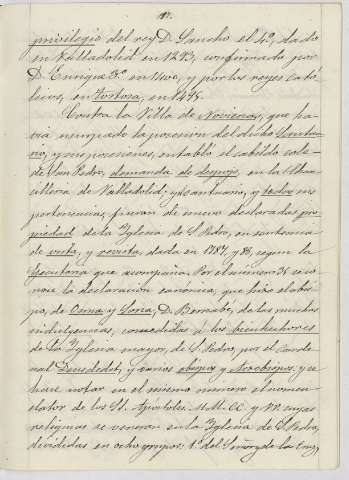 17.
privilegio del rey D. Sancho el 4º, dado
en Valladolid en 1293, confirmado por
D. Enrique 3º en 1400, y por los reyes Cató
licos, en Tortosa, en 1495.
Contra la Villa de Noviercas, que ha-
bía usurpado la posesion del dicho Santua-
rio, y sus posesiones, entabló el cabildo cole-
de San Pedro, demanda de despojo, en la Chan-
cillera de Valladolid; y el santuario, y todas sus
pertenencias, fueron de nuevo declaradas pro-
piedad de la Iglesia de S. Pedro, en sentencia
de vista, y revista, dada en 1787, y 88, segun la
Egecutoria que acompaña. Por el número 38 se co-
noce la declaración canónica, que hizo el obis-
po, de Osma, y Soria, D. Bernabé, de las muchas
indulgencias, concedidas á los bienhechores
de la Iglesia mayor, de S. Pedro, por el Carde-
nal y varios obispos y Arzobispos, y se
hace notar en el mismo número el nomen-
clator de los SS. Apóstoles, M.M. CC. y VV. cuyas
reliquias se veneran en la Iglesia de S. Pedro,
divididas en ocho grupos: 1º del Señor, de la Cruz,